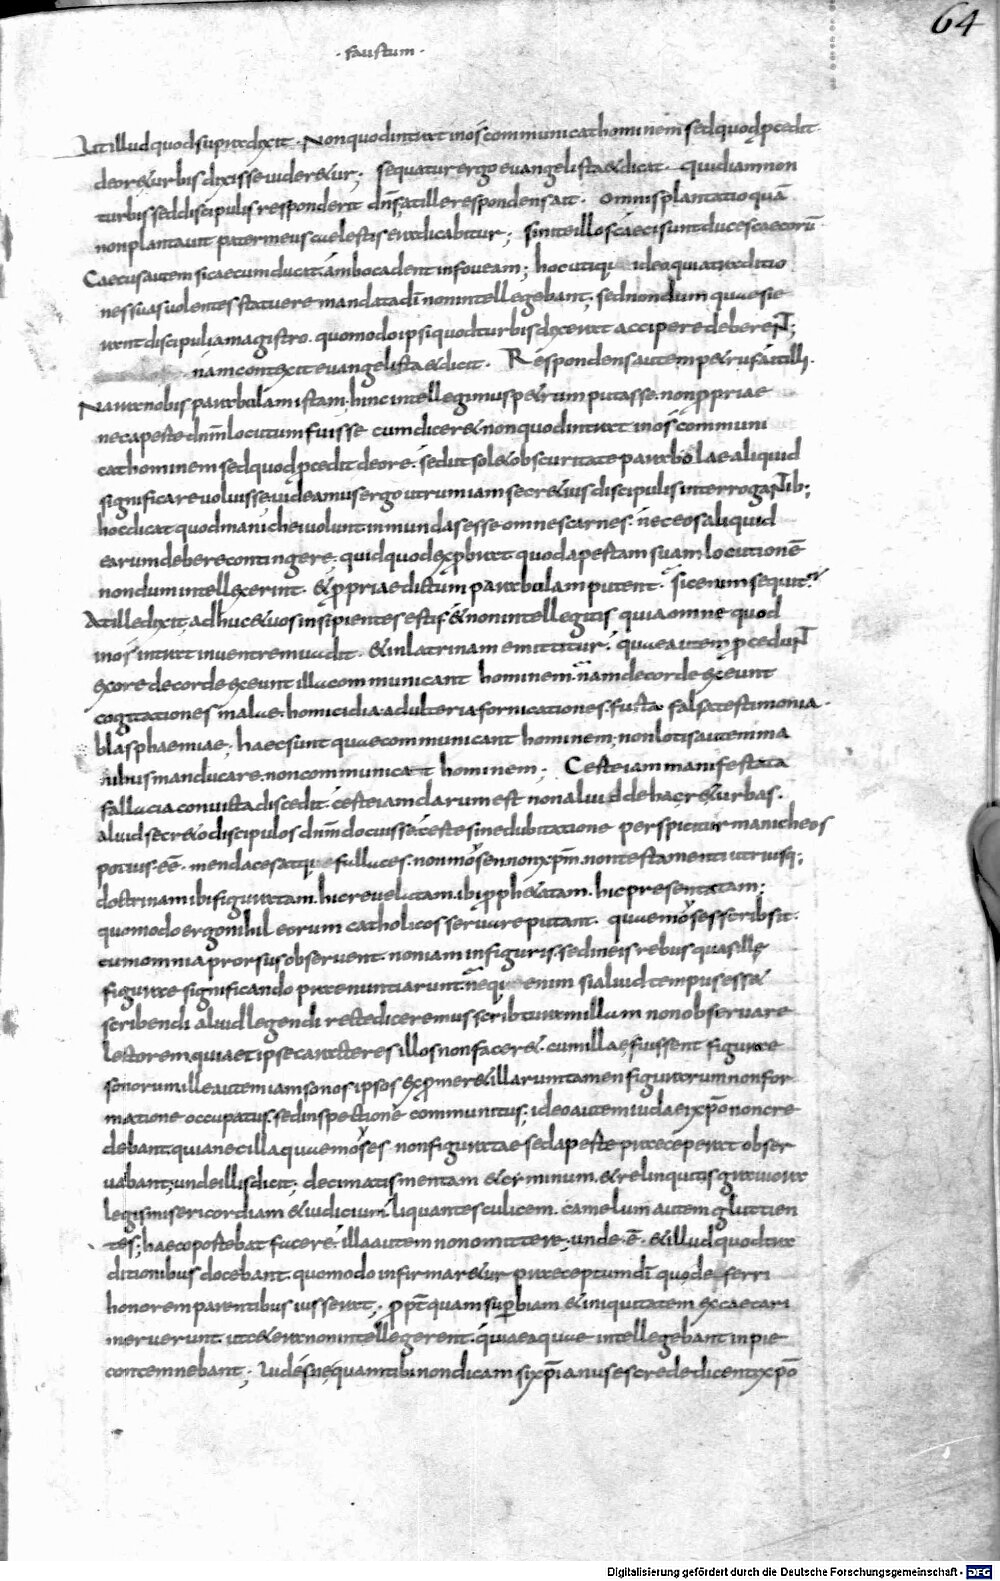 64
· faustum ·
Ut illud quod supra dixit · Non quod intrat in os communicat hominem sed quod pcedit
de ore & urbis dixisse uider&ur ; sequatur ergo euangelista & dicat · qui diam non
turbis sed discipulis responderit dns at ille respondens ait · omnis plantatio quā
non plantauit pater meus caelestis eradicabitur ; sinite illos caeci sunt duces caecorū
Caecus autem si caecum ducat ambo cadent in foueam ; hoc utiqu ideo quia traditio
nes suas uolentes statuere mandata dī non intellegebant ; sed nondum quaesie
rant discipuli a magistro · quomodo ipsi quod turbis dixerat accipere deberent ;
nam contexit euangelista & dicit · Respondens autem p&rus ait illi ·
Narra nobis parabolam istam · hinc intellegimus p&rum putasse · non ppriae
nec aperte dnm locutum fuisse cum dicer& non quod intrat in os communi
cat hominem sed quod pcedit de ore · sed ut sol& obscuritate parabolae aliquid
significare uoluisse uideamus ergo utrum iam secr&ius discipulis interrogantib;
hoc dicat quod manichei uolunt inmundas esse omnes carnes · nec eos aliquid
earum debere contingere · quid quod exp bra&t quod apertam suam locutionē
nondum intellexerint · & ppriae dictum parabolam putent · sic enim sequit
At ille dixit · adhuc & uos insipientes estis & non intellegitis quia omne quod
in os intrat in uentrem uadit · & in latrinam emittitur · quae autem pcedunt
ex ore de corde exeunt illa communicant hominem · nam de corde exeunt
cogitationes malae · homicidia adulteria fornicationes · furta falsa testimonia ·
blasphaemiae ; haec sunt quae communicant hominem ; non lotis autem ma
nibus manducare · non communicat hominem ; Certe iam manifestata
fallacia conuicta discedit · certe iam clarum est non aliud de hac re & urbas ·
aliud secr&o discipulos dnm docuisse certe sine dubitatione perspicitur manicheos
potius · eē · mendaces atqu fallaces · non mosen non xpm · non testamenti utriusq;
doctrinam ibi figuratam · hic reuelatam · ibi pph&atam · hic presentatam ;
quomodo ergo nihil eorum catholicos seruare putant · quae moses scribsit ·
cum omnia prorsus obseruent · non iam in figuris · sed in eis rebus quas ille
figurate significando praenuntiarunt nequ enim si aliud tempus ess&
scribendi aliud legendi recte diceremus scribturam illam non obseruare
lectorem quia et ipse caracteres illos non facer& · cum illae fuissent figurae
sonorum ille autem iam sonos ipsos exprimer& illarum tamen figurarum non for
matione occupatus · sed inspectione communitus ; ideo autem iudaei xpō non cre
debant quia nec illa quae moses non figuratae sed aperte praeceperat obser
uabant ; unde illis dicit ; decimatis mentam & cyminum · & relinquitis grauiora
legis misericordiam & iudicium liquantes culicem · camelum autem gluttien
tes ; haec oportebat facere · illa autem non omittere · unde · ē · & illud quod tra
ditionibus docebant · quomodo infirmar&ur praeceptum dī quo de ferri
honorem parentibus iusserat ; ppt quam superbiam & iniquitatem excaecari
meruerunt · ut c&era non intellegerent · quia ea quae intellegebant inpie
contemnebant ; Uides ne quam tibi non dicam si xpianus es crede dicenti xpō
Digitalisierung gefördert durch die Deutsche Forschungsgemeinschaft - DFG